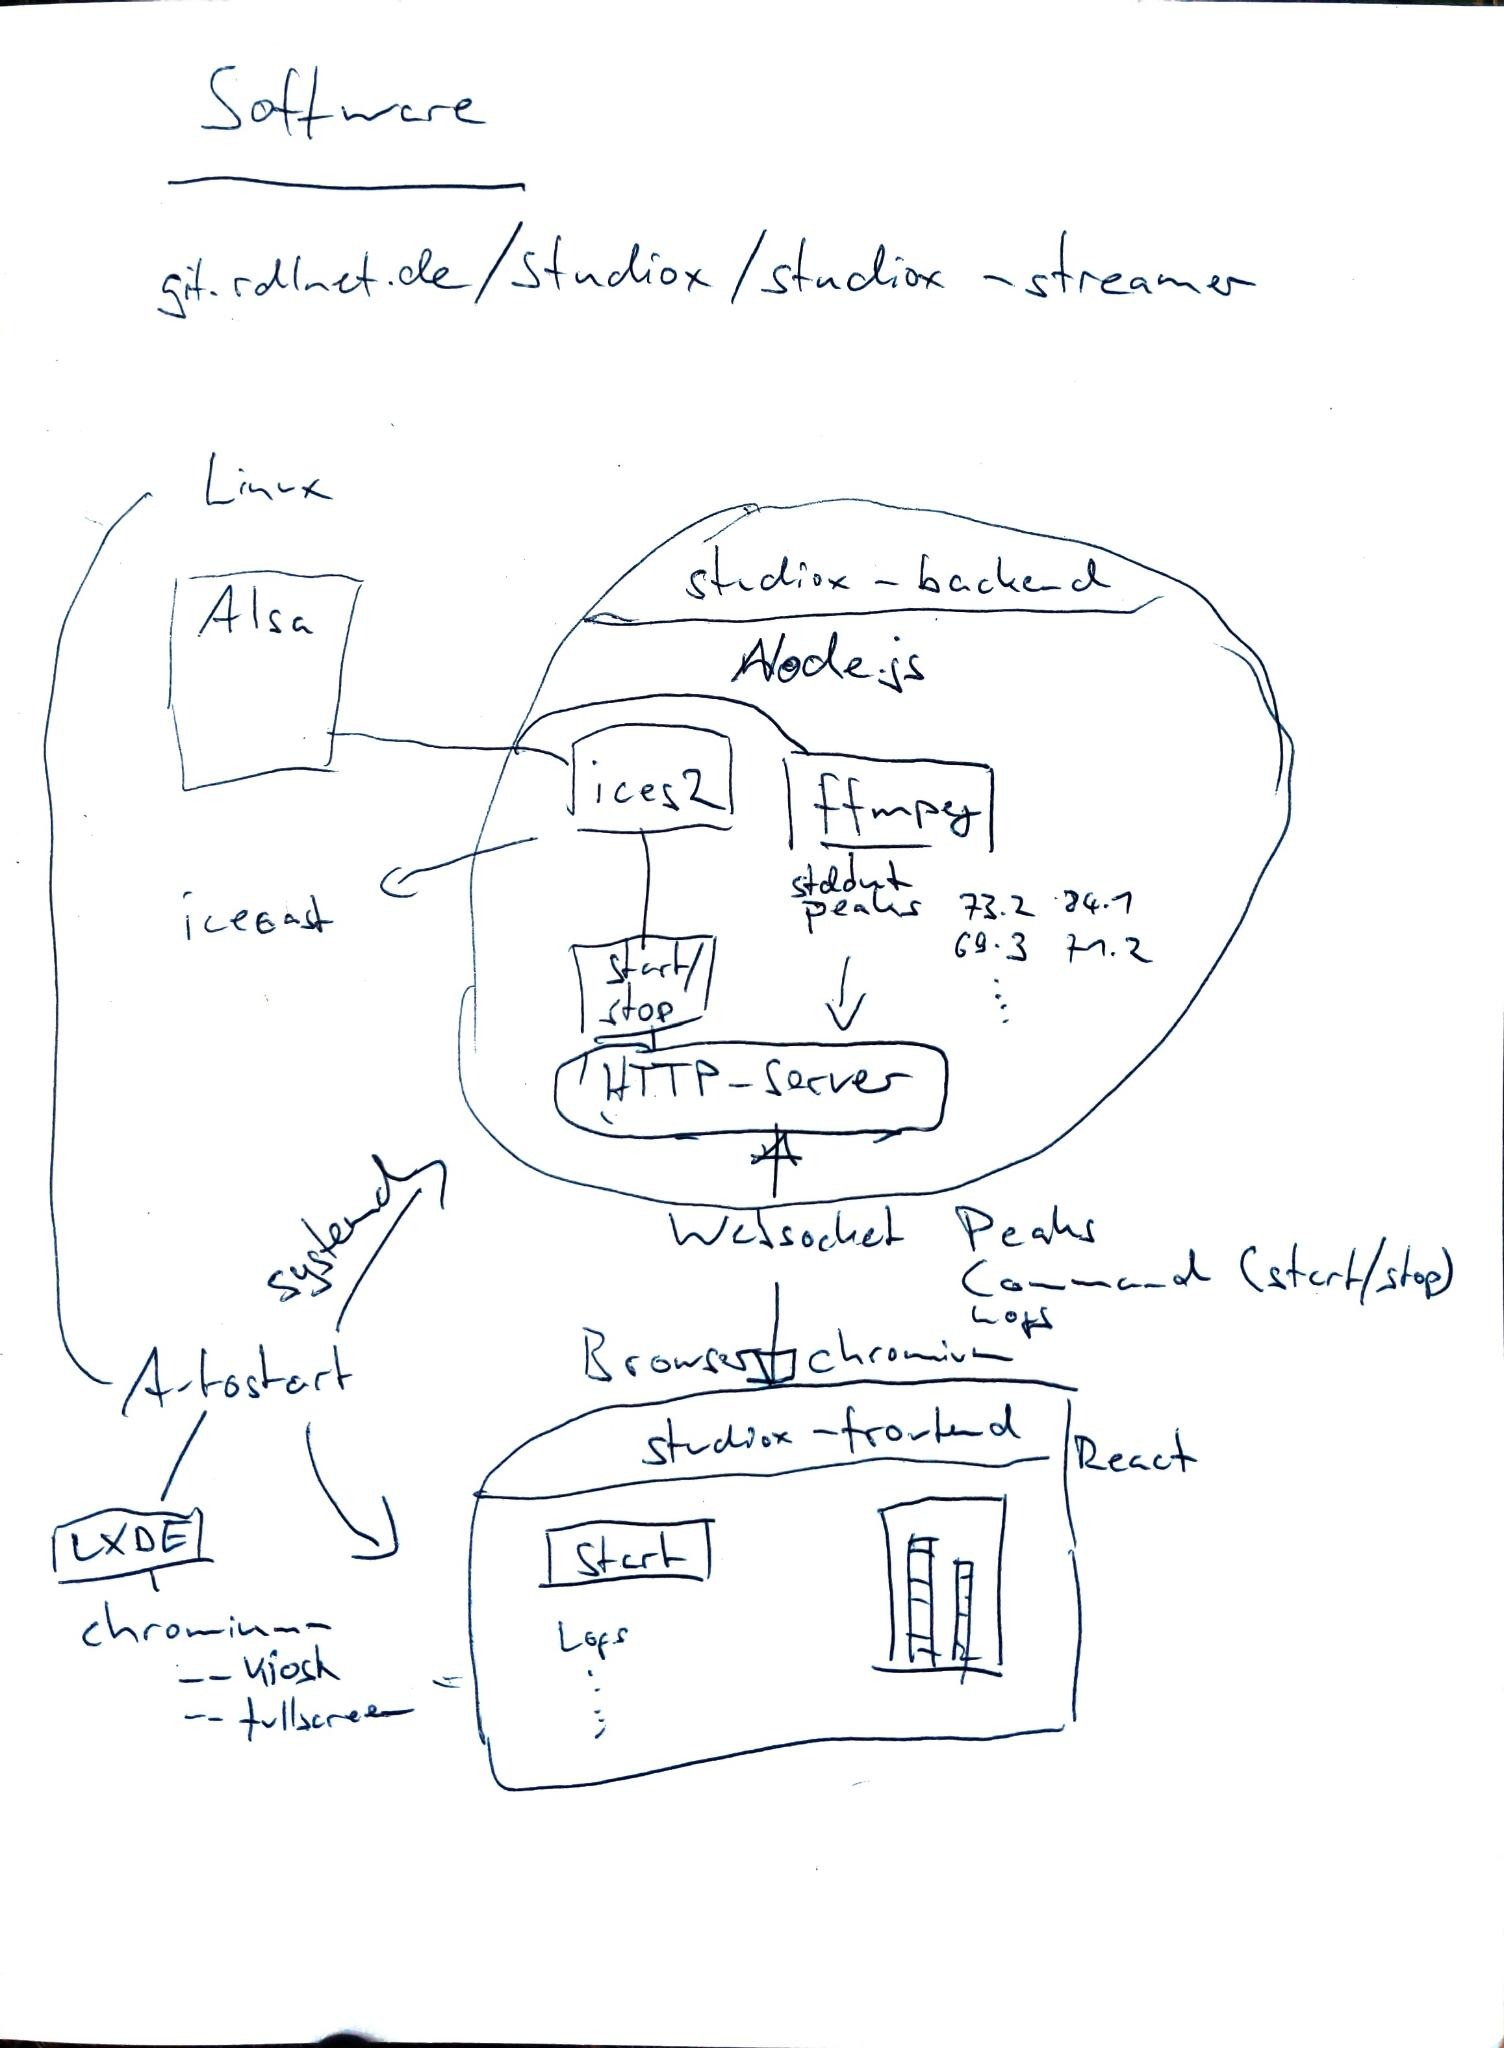 Software
git.rdlnet.de/studiox/studiox-streamer
Linux
Alsa
studiox-backend
Node.js
ices2
ffmpeg
stdout
peaks
73.2 84.1
69.3 71.2
icecast
start/
stop
HTTP-Server
systemd
Websocket
Peaks
Command (start/stop)
Logs
Autostart
Browser chromium
studiox-frontend
React
LXDE
Start
chromium
-- Kiosk
-- fullscreen
Logs